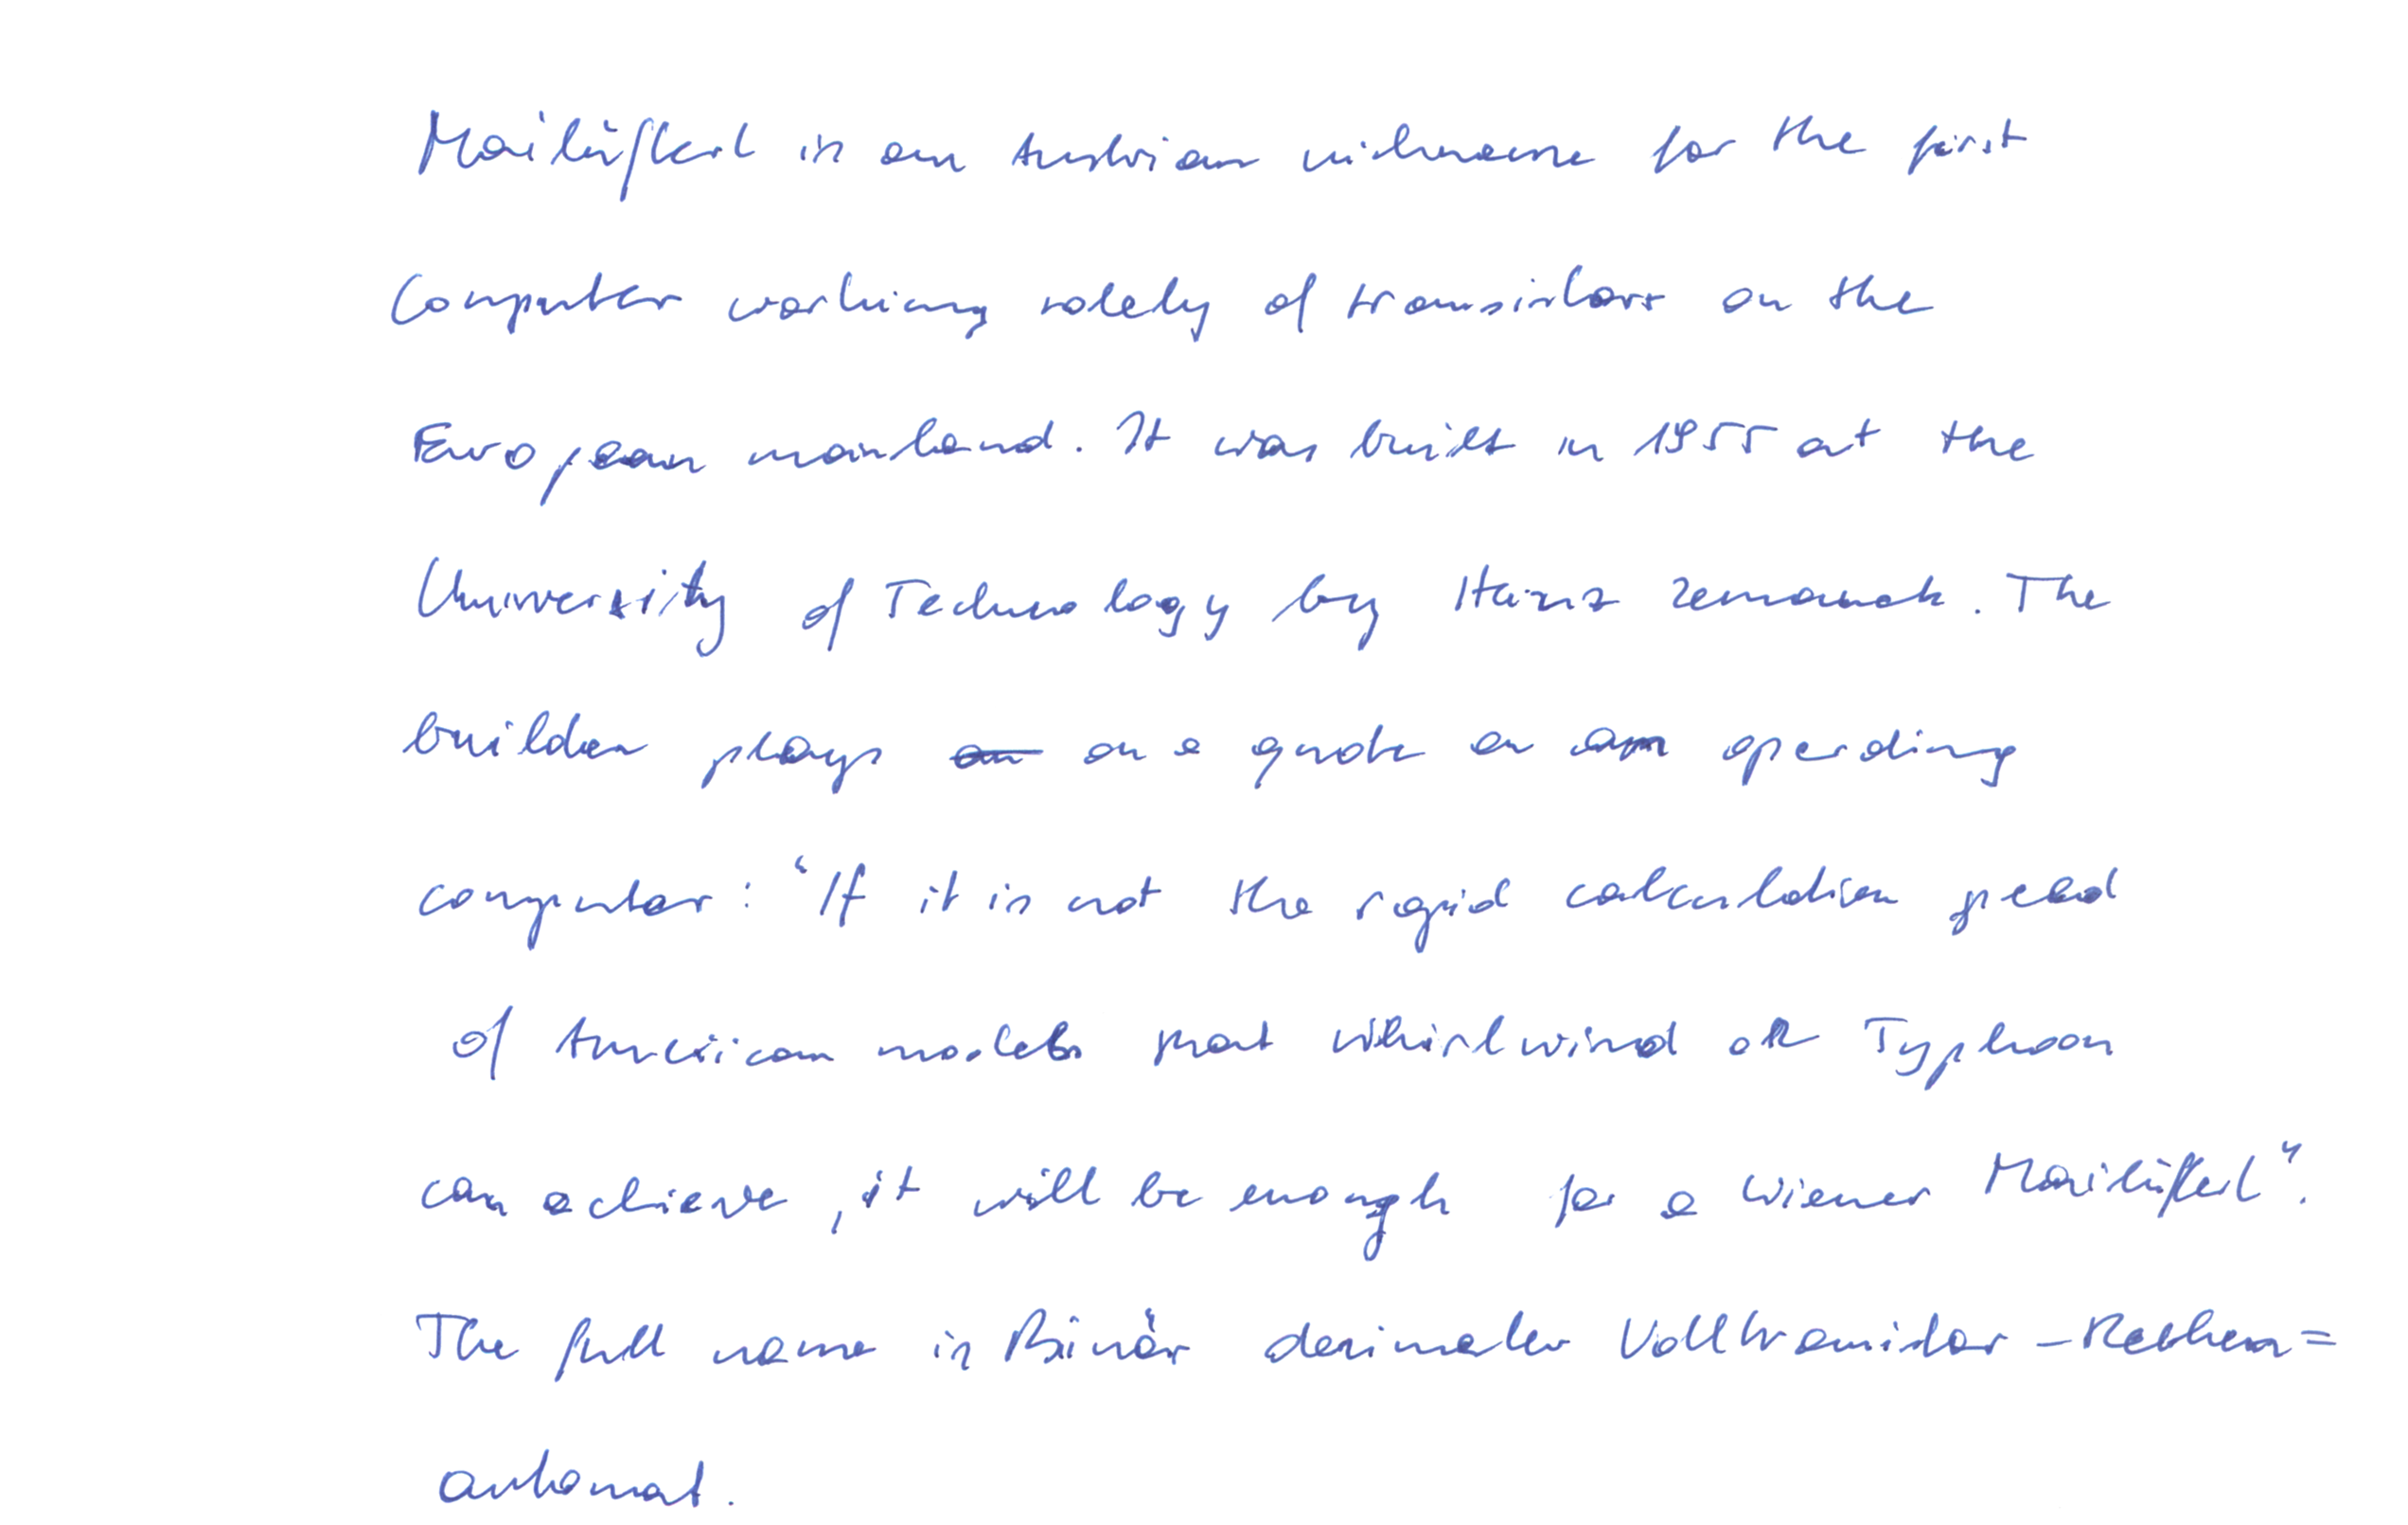 Mailüfterl is an Austrian nickname for the first
Computer working solely of transistors on the
European mainland. It was built in 1955 at the
University of Technology by Heinz Zemanek. The
builder plays on a quote an operating
computer: "If it is not the rapid calculation speed
of American models that Whirlwind or Typhoon
can achieve, it will be enough for a Wiener Mailüfterl".
The full name is Binär dezimaler Volltransistor-Rechen=
automat.